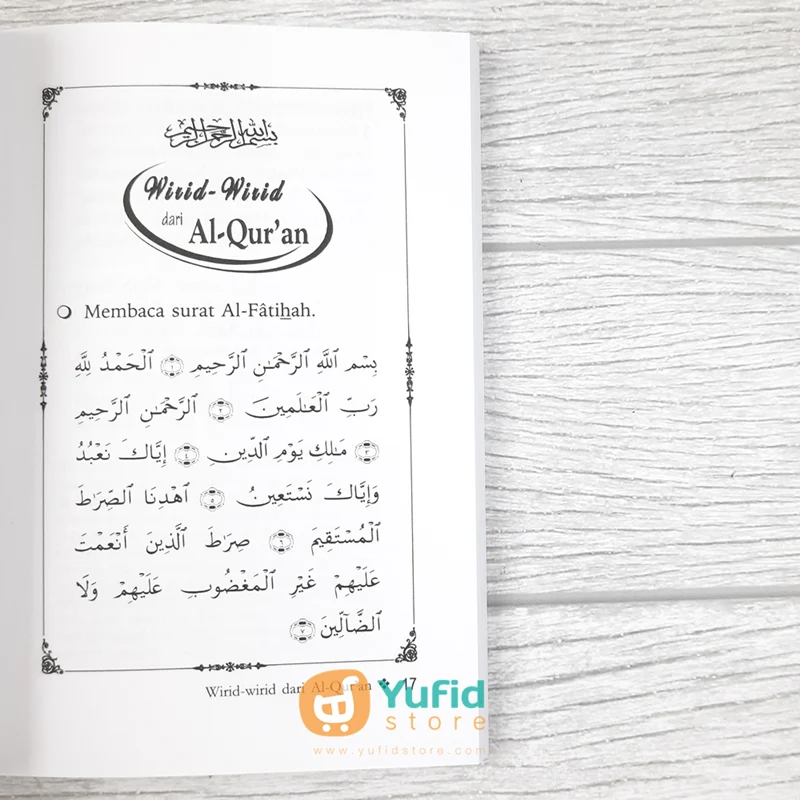 بسم الله الرحمن الرحيم
Wirid-Wirid
dari
Al-Qur'an
❍ Membaca surat Al-Fâtiẖah.
بِسْمِ اللَّهِ الرَّحْمَٰنِ الرَّحِيمِ ١ الْحَمْدُ لِلَّهِ
رَبِّ الْعَالَمِينَ ٢ الرَّحْمَٰنِ الرَّحِيمِ
٣ مَالِكِ يَوْمِ الدِّينِ ٤ إِيَّاكَ نَعْبُدُ
وَإِيَّاكَ نَسْتَعِينُ ٥ اهْدِنَا الصِّرَاطَ
الْمُسْتَقِيمَ ٦ صِرَاطَ الَّذِينَ أَنْعَمْتَ
عَلَيْهِمْ غَيْرِ الْمَغْضُوبِ عَلَيْهِمْ وَلَا
الضَّالِّينَ ٧
Wirid-wirid dari Al-Qur'an ❖ 17
Yufid
store
www.yufidstore.com